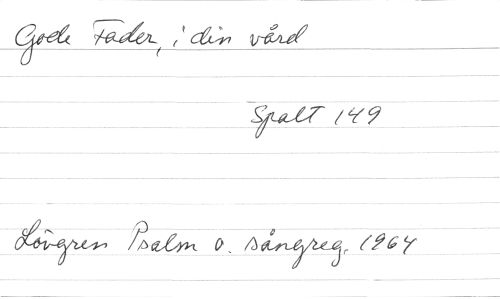 Gode Fader, i din vård
Spalt 149
Lövgren Psalm o. sångreg. 1964